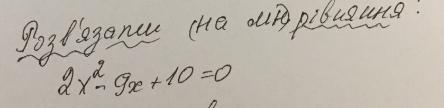 Розв'язати (на мн) рівняння:
2x² - 9x + 10 = 0